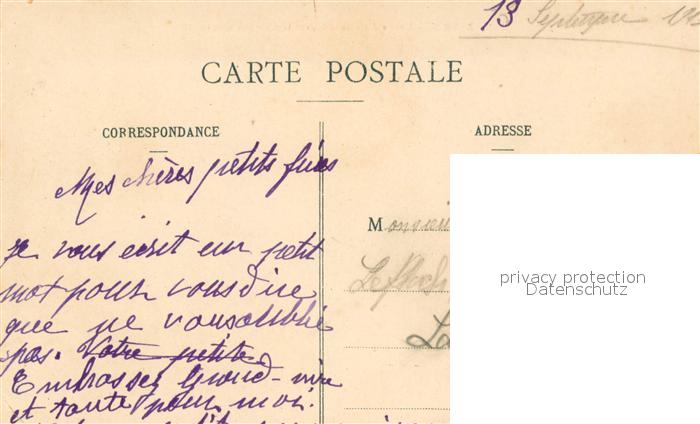 13 Septembre
CARTE POSTALE
CORRESPONDANCE
ADRESSE
Mes chères petits frères
Monsieur
je vous écrit un petit
mot pour vous dire
que ne vous oublie
pas. Votre petite
Embrassez Grand-mère
et tante pour moi.
privacy protection
Datenschutz